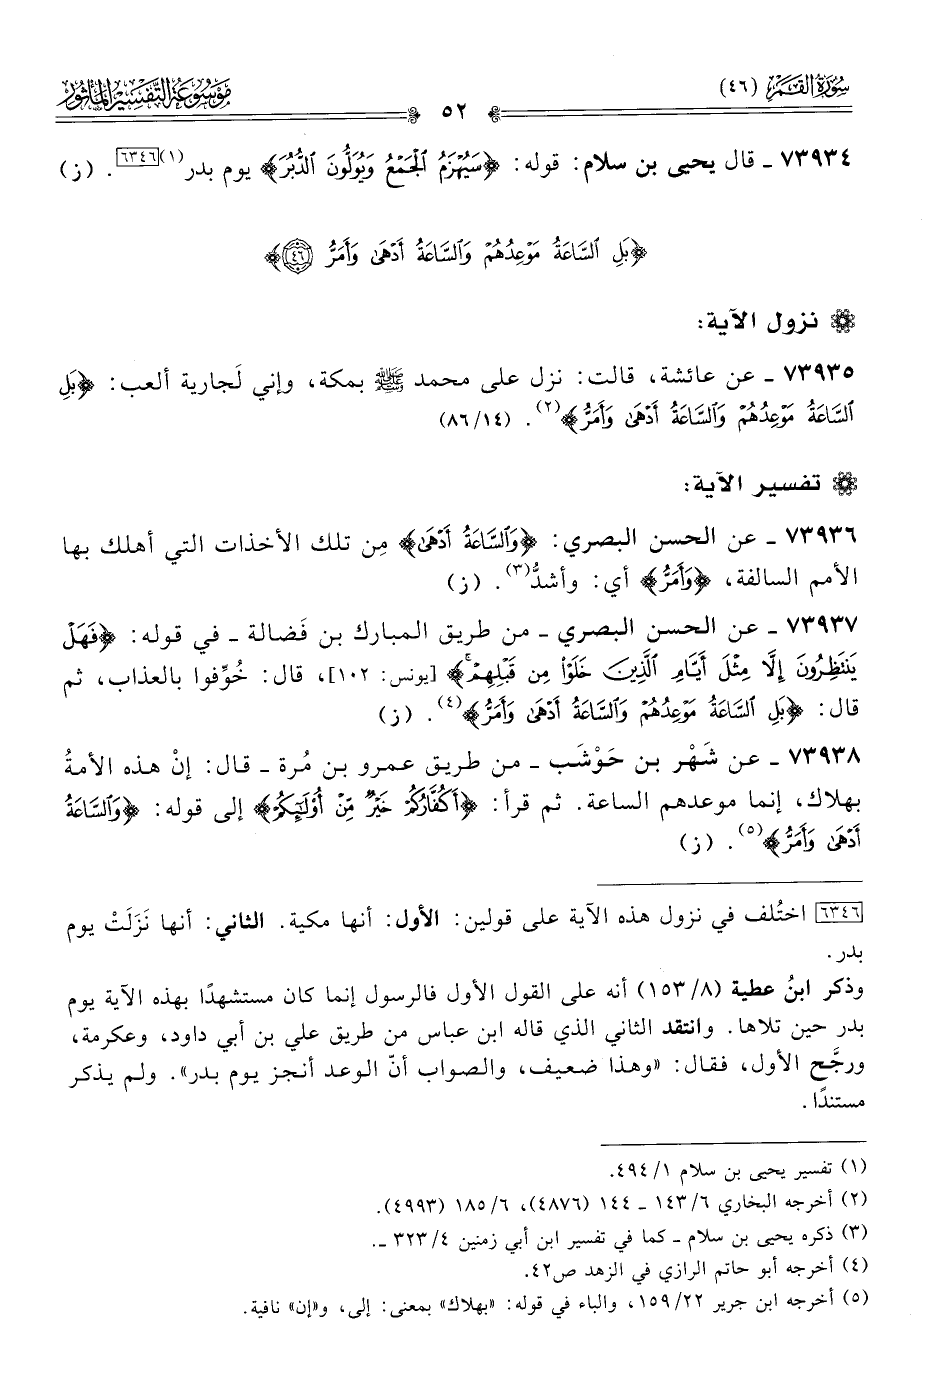 سُورَةُ القَمَر (٤٦)
٥٢
مَوْسُوعَة التَّفْسِيْر المَأثُور
٧٣٩٣٤ ـ قال يحيى بن سلام: قوله: ﴿سَيُهْزَمُ ٱلْجَمْعُ وَيُوَلُّونَ ٱلدُّبُرَ﴾ يوم بدر(١)[٦٣٤٦]. (ز)
﴿بَلِ ٱلسَّاعَةُ مَوْعِدُهُمْ وَٱلسَّاعَةُ أَدْهَىٰ وَأَمَرُّ ٤٦﴾
نزول الآية:
٧٣٩٣٥ ـ عن عائشة، قالت: نزل على محمد ﷺ بمكة، وإني لَجارية ألعب: ﴿بَلِ
ٱلسَّاعَةُ مَوْعِدُهُمْ وَٱلسَّاعَةُ أَدْهَىٰ وَأَمَرُّ﴾(٢). (١٤/ ٨٦)
تفسير الآية:
٧٣٩٣٦ ـ عن الحسن البصري: ﴿وَٱلسَّاعَةُ أَدْهَىٰ﴾ مِن تلك الأخذات التي أهلك بها
الأمم السالفة، ﴿وَأَمَرُّ﴾ أي: وأشدُّ(٣). (ز)
٧٣٩٣٧ ـ عن الحسن البصري ـ من طريق المبارك بن فَضالة ـ في قوله: ﴿فَهَلْ
يَنتَظِرُونَ إِلَّا مِثْلَ أَيَّامِ ٱلَّذِينَ خَلَوْا۟ مِن قَبْلِهِمْ ۚ﴾ [يونس: ١٠٢]، قال: خُوِّفوا بالعذاب، ثم
قال: ﴿بَلِ ٱلسَّاعَةُ مَوْعِدُهُمْ وَٱلسَّاعَةُ أَدْهَىٰ وَأَمَرُّ﴾(٤). (ز)
٧٣٩٣٨ ـ عن شَهْر بن حَوْشَب ـ من طريق عمرو بن مُرة ـ قال: إنْ هذه الأمةُ
بهلاك، إنما موعدهم الساعة. ثم قرأ: ﴿أَكُفَّارُكُمْ خَيْرٌ مِّنْ أُو۟لَٰٓئِكُمْ﴾ إلى قوله: ﴿وَٱلسَّاعَةُ
أَدْهَىٰ وَأَمَرُّ﴾(٥). (ز)
[٦٣٤٦] اختُلف في نزول هذه الآية على قولين: الأول: أنها مكية. الثاني: أنها نَزَلَتْ يوم
بدر.
وذكر ابنُ عطية (٨/ ١٥٣) أنه على القول الأول فالرسول إنما كان مستشهدًا بهذه الآية يوم
بدر حين تلاها. وانتقد الثاني الذي قاله ابن عباس من طريق علي بن أبي داود، وعكرمة،
ورجَّح الأول، فقال: «وهذا ضعيف، والصواب أنّ الوعد أنجز يوم بدر». ولم يذكر
مستندًا.
(١) تفسير يحيى بن سلام ١/ ٤٩٤.
(٢) أخرجه البخاري ٦/ ١٤٣ ـ ١٤٤ (٤٨٧٦)، ٦/ ١٨٥ (٤٩٩٣).
(٣) ذكره يحيى بن سلام ـ كما في تفسير ابن أبي زمنين ٤/ ٣٢٣ ـ.
(٤) أخرجه أبو حاتم الرازي في الزهد ص٤٢.
(٥) أخرجه ابن جرير ٢٢/ ١٥٩، والباء في قوله: «بهلاك» بمعنى: إلى، و«إن» نافية.